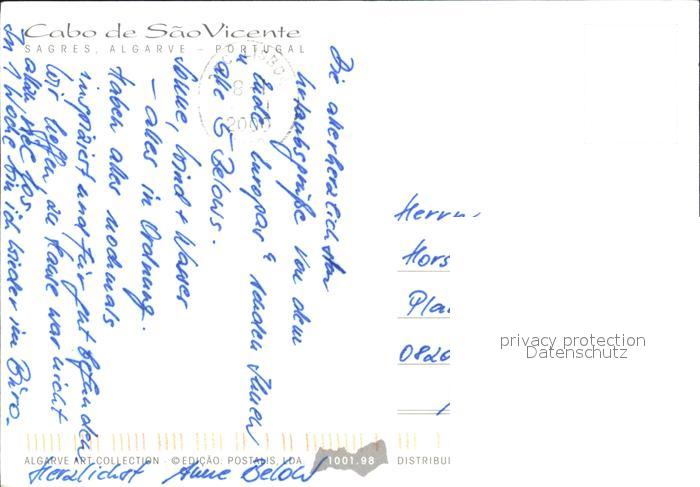 Cabo de São Vicente
SAGRES, ALGARVE - PORTUGAL
Die allerherzlichsten
Urlaubsgrüße von dem
"Ende Europas" senden Ihnen
alle 5 Belows.
Sonne, Wind + Wasser
- alles in Ordnung.
Haben alles nochmals
inspiziert und für gut befunden
Wir hoffen, zu Hause war nicht
allzu viel los.
In 1 Woche bin ich wieder im Büro.
Herzlichst Anne Below
Herrn
Hors
Pla
0820
2000
privacy protection
Datenschutz
ALGARVE ART COLLECTION · © EDIÇÃO. POSTALIS, LDA 1001.98 DISTRIBUI